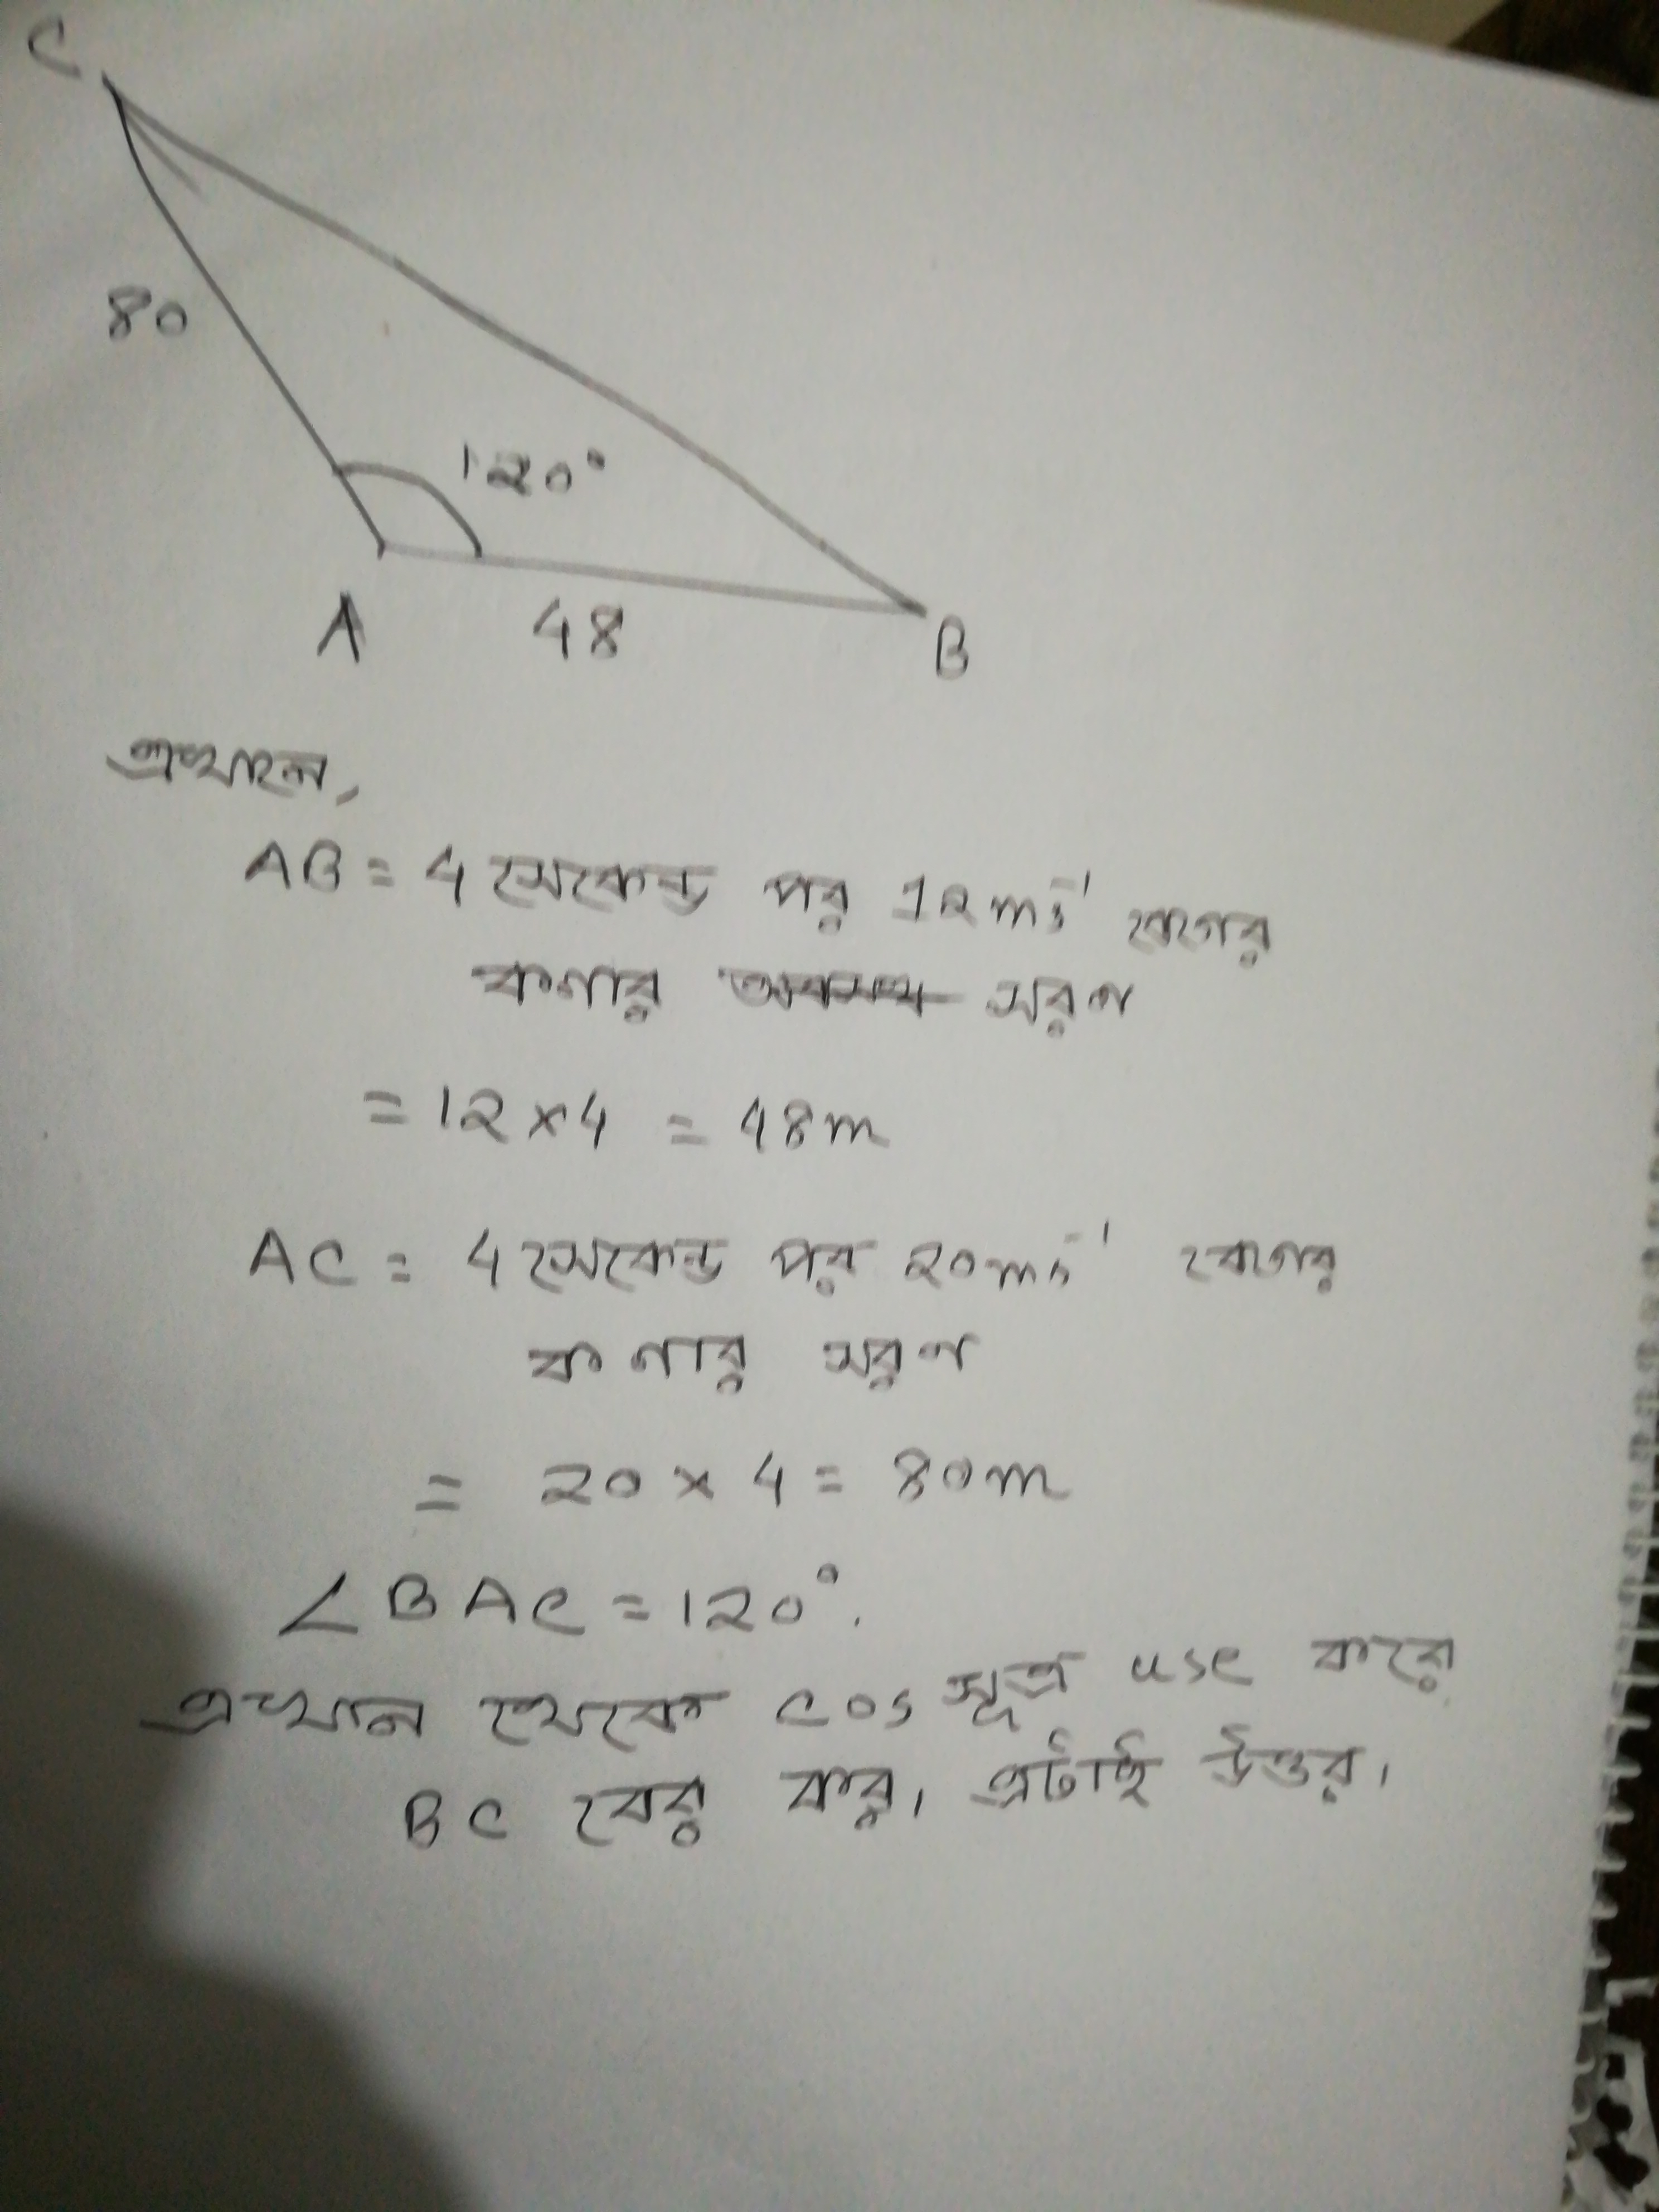 C
80
120°
A
48
B
এখানে,
AB = 4 সেকেন্ড পর 12ms⁻¹ বেগের
কণার সরণ
= 12 × 4 = 48m
AC = 4 সেকেন্ড পর 20ms⁻¹ বেগের
কণার সরণ
= 20 × 4 = 80m
∠BAC = 120°.
এখান থেকে cos সূত্র use করে
BC বের কর। এটাই উত্তর।